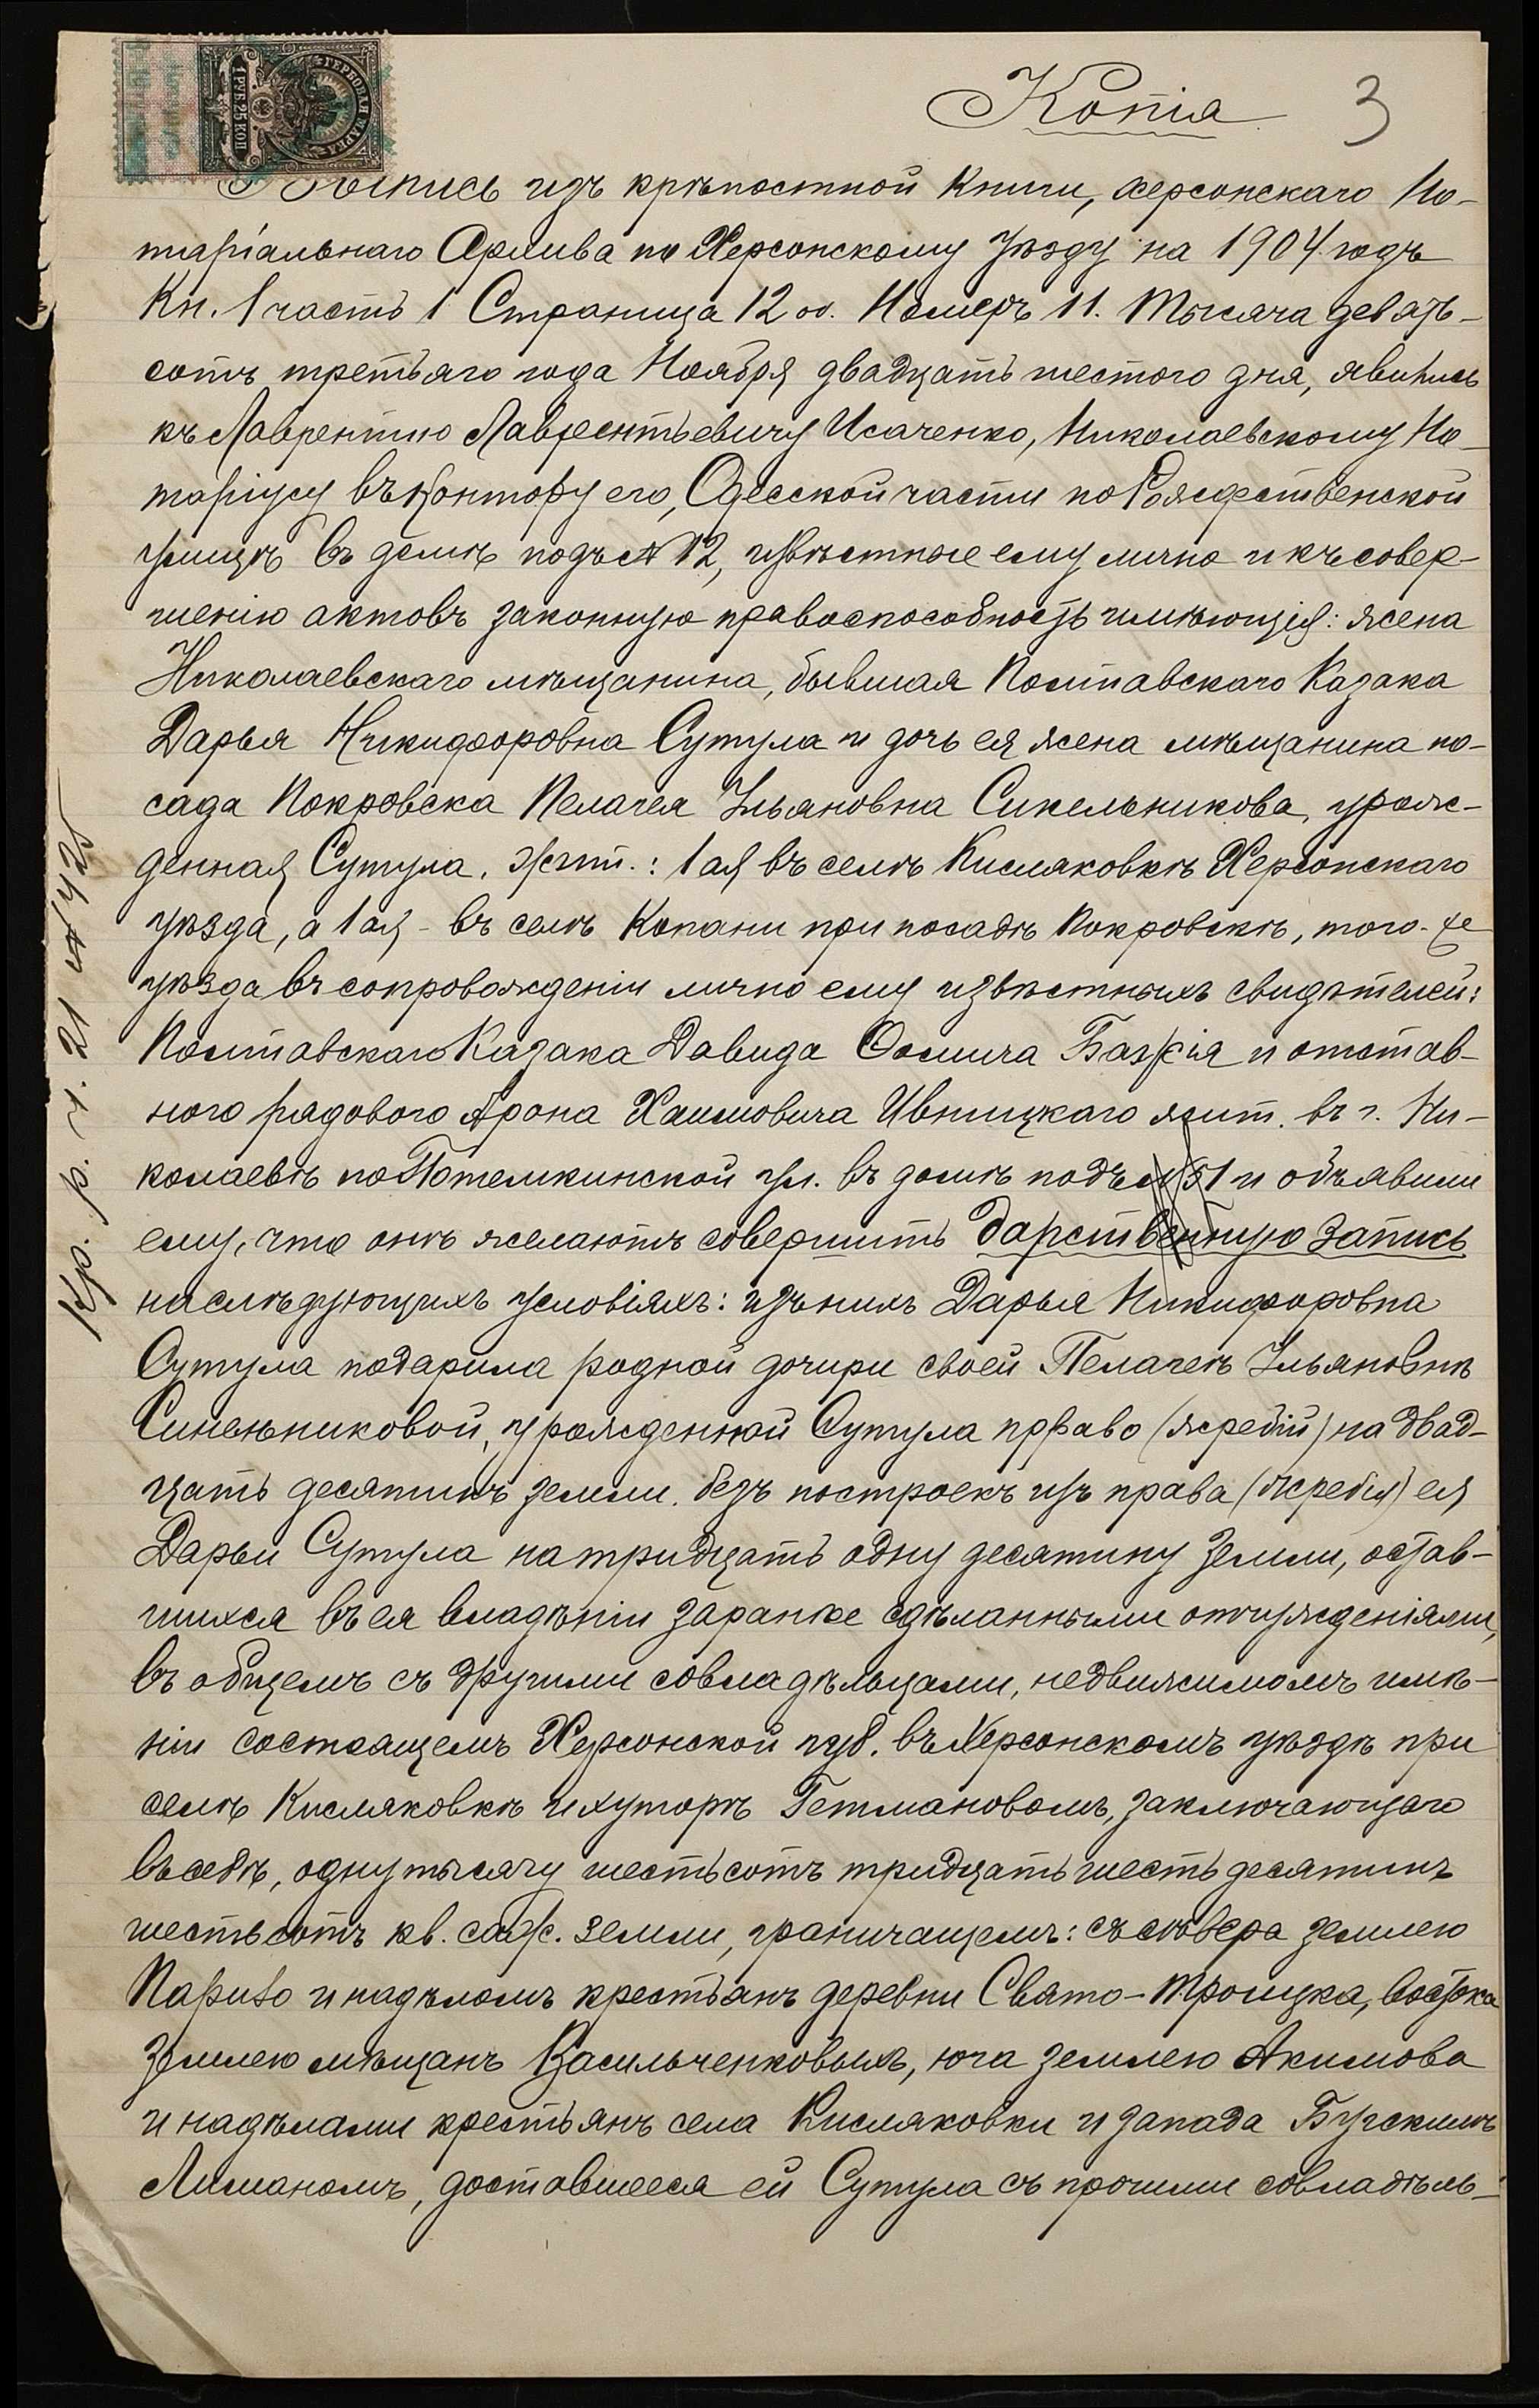 Копія 3
ГЕРБОВАЯ МАРКА
1 РУБ. 25 КОП
Выпись изъ крѣпостной книги, Херсонскаго Но-
таріальнаго Архива по Херсонскому уѣзду на 1904 годъ
Кн. 1 часть 1 Страница 12 об. Номеръ 11. Тысяча девять-
сотъ третьяго года Ноября двадцать шестого дня, явились
къ Лаврентію Лаврентьевичу Исаченко, Николаевскому Но-
таріусу въ контору его, Одесской части по Рождественской
улицѣ въ домѣ подъ № 12, извѣстные ему лично и къ совер-
шенію актовъ законную правоспособность имѣющія: жена
Николаевскаго мѣщанина, бывшая Полтавскаго Казака
Дарья Никифоровна Сутула и дочь ея жена мѣщанина по-
сада Покровска Пелагея Ульяновна Синельникова, урож-
денная Сутула, жит.: 1 ая въ селѣ Кисляковкѣ Херсонскаго
уѣзда, а 1 ая - въ селѣ Копани при посадѣ Покровскѣ, того-же
уѣзда въ сопровожденіи лично ему извѣстныхъ свидѣтелей:
Полтавскаго Казака Давида Фомича и отстав-
ного рядового Арона Хаимовича Ивницкаго жит. въ г. Ни-
колаевѣ по Потемкинской ул. въ домѣ подъ № 51 и объявили
ему, что онѣ желаютъ совершить дарственную запись
на слѣдующихъ условіяхъ: изъ нихъ Дарья Никифоровна
Сутула подарила родной дочири своей Пелагеѣ Ульяновнѣ
Синельниковой, урожденной Сутула право (жребій) на двад-
цать десятинъ земли, безъ построекъ изъ права (жребія) ея
Дарьи Сутула на тридцать одну десятину земли, остав-
шихся въ ея владѣніи заранѣе сдѣланными отчужденіями,
въ общемъ съ другими совладѣльцами, недвижимомъ имѣ-
ніи состоящемъ Херсонской губ. въ Херсонскомъ уѣздѣ при
селѣ Кисляковкѣ и хуторѣ Гетмановомъ, заключающаго
въ себѣ, одну тысячу шестьсотъ тридцать шесть десятинъ
шестьсотъ кв. саж. земли, граничащемъ: съ сѣвера землею
и надѣломъ крестьянъ деревни Свято-Троицка, востока
землею мѣщанъ Васильченковыхъ, юга землею Акимова
и надѣлами крестьянъ села Кисляковки и запада Бугскимъ
Лиманомъ, доставшееся ей Сутула съ прочими совладѣль-
Кр. р. ч. 21 № 425